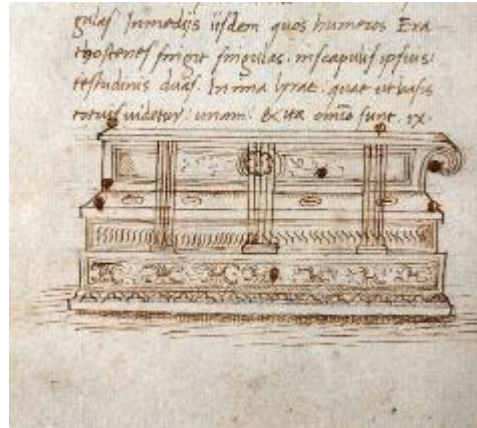 gulas Inmedijs iisdem quos humeros Era
thostenes fingit singulas. inscapulis ipsius
testudinis duas. In ima lyra. quae ut basis
totius uidetur: unam: & ita sunt. ix.